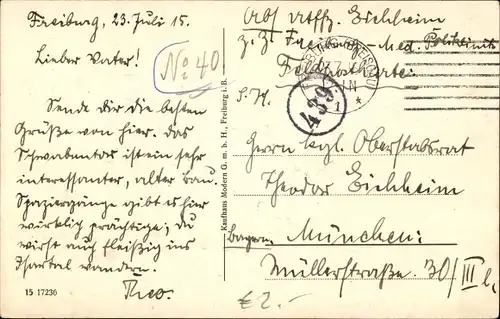 Freiburg, 23. Juli 15.
Lieber Vater!
No 40
Sende dir die besten
Grüße von hier. Das
Schwabentor ist ein sehr
interessanter, alter Bau.
Spaziergänge gibt es hier
wirklich prächtige; du
wirst auch fleißig ins
Isartal wandern.
Theo.
15 17236
Kaufhaus Modern G. m. b. H., Freiburg i. B.
Abs. Utffz. Eichheim
z. Z. Freiburg Med. Poliklinik
Feldpostkarte
S. H.
439
Herrn kgl. Oberstabsrat
Theodor Eichheim
Bayern München:
Müllerstraße 30/III l.
€ 2.-